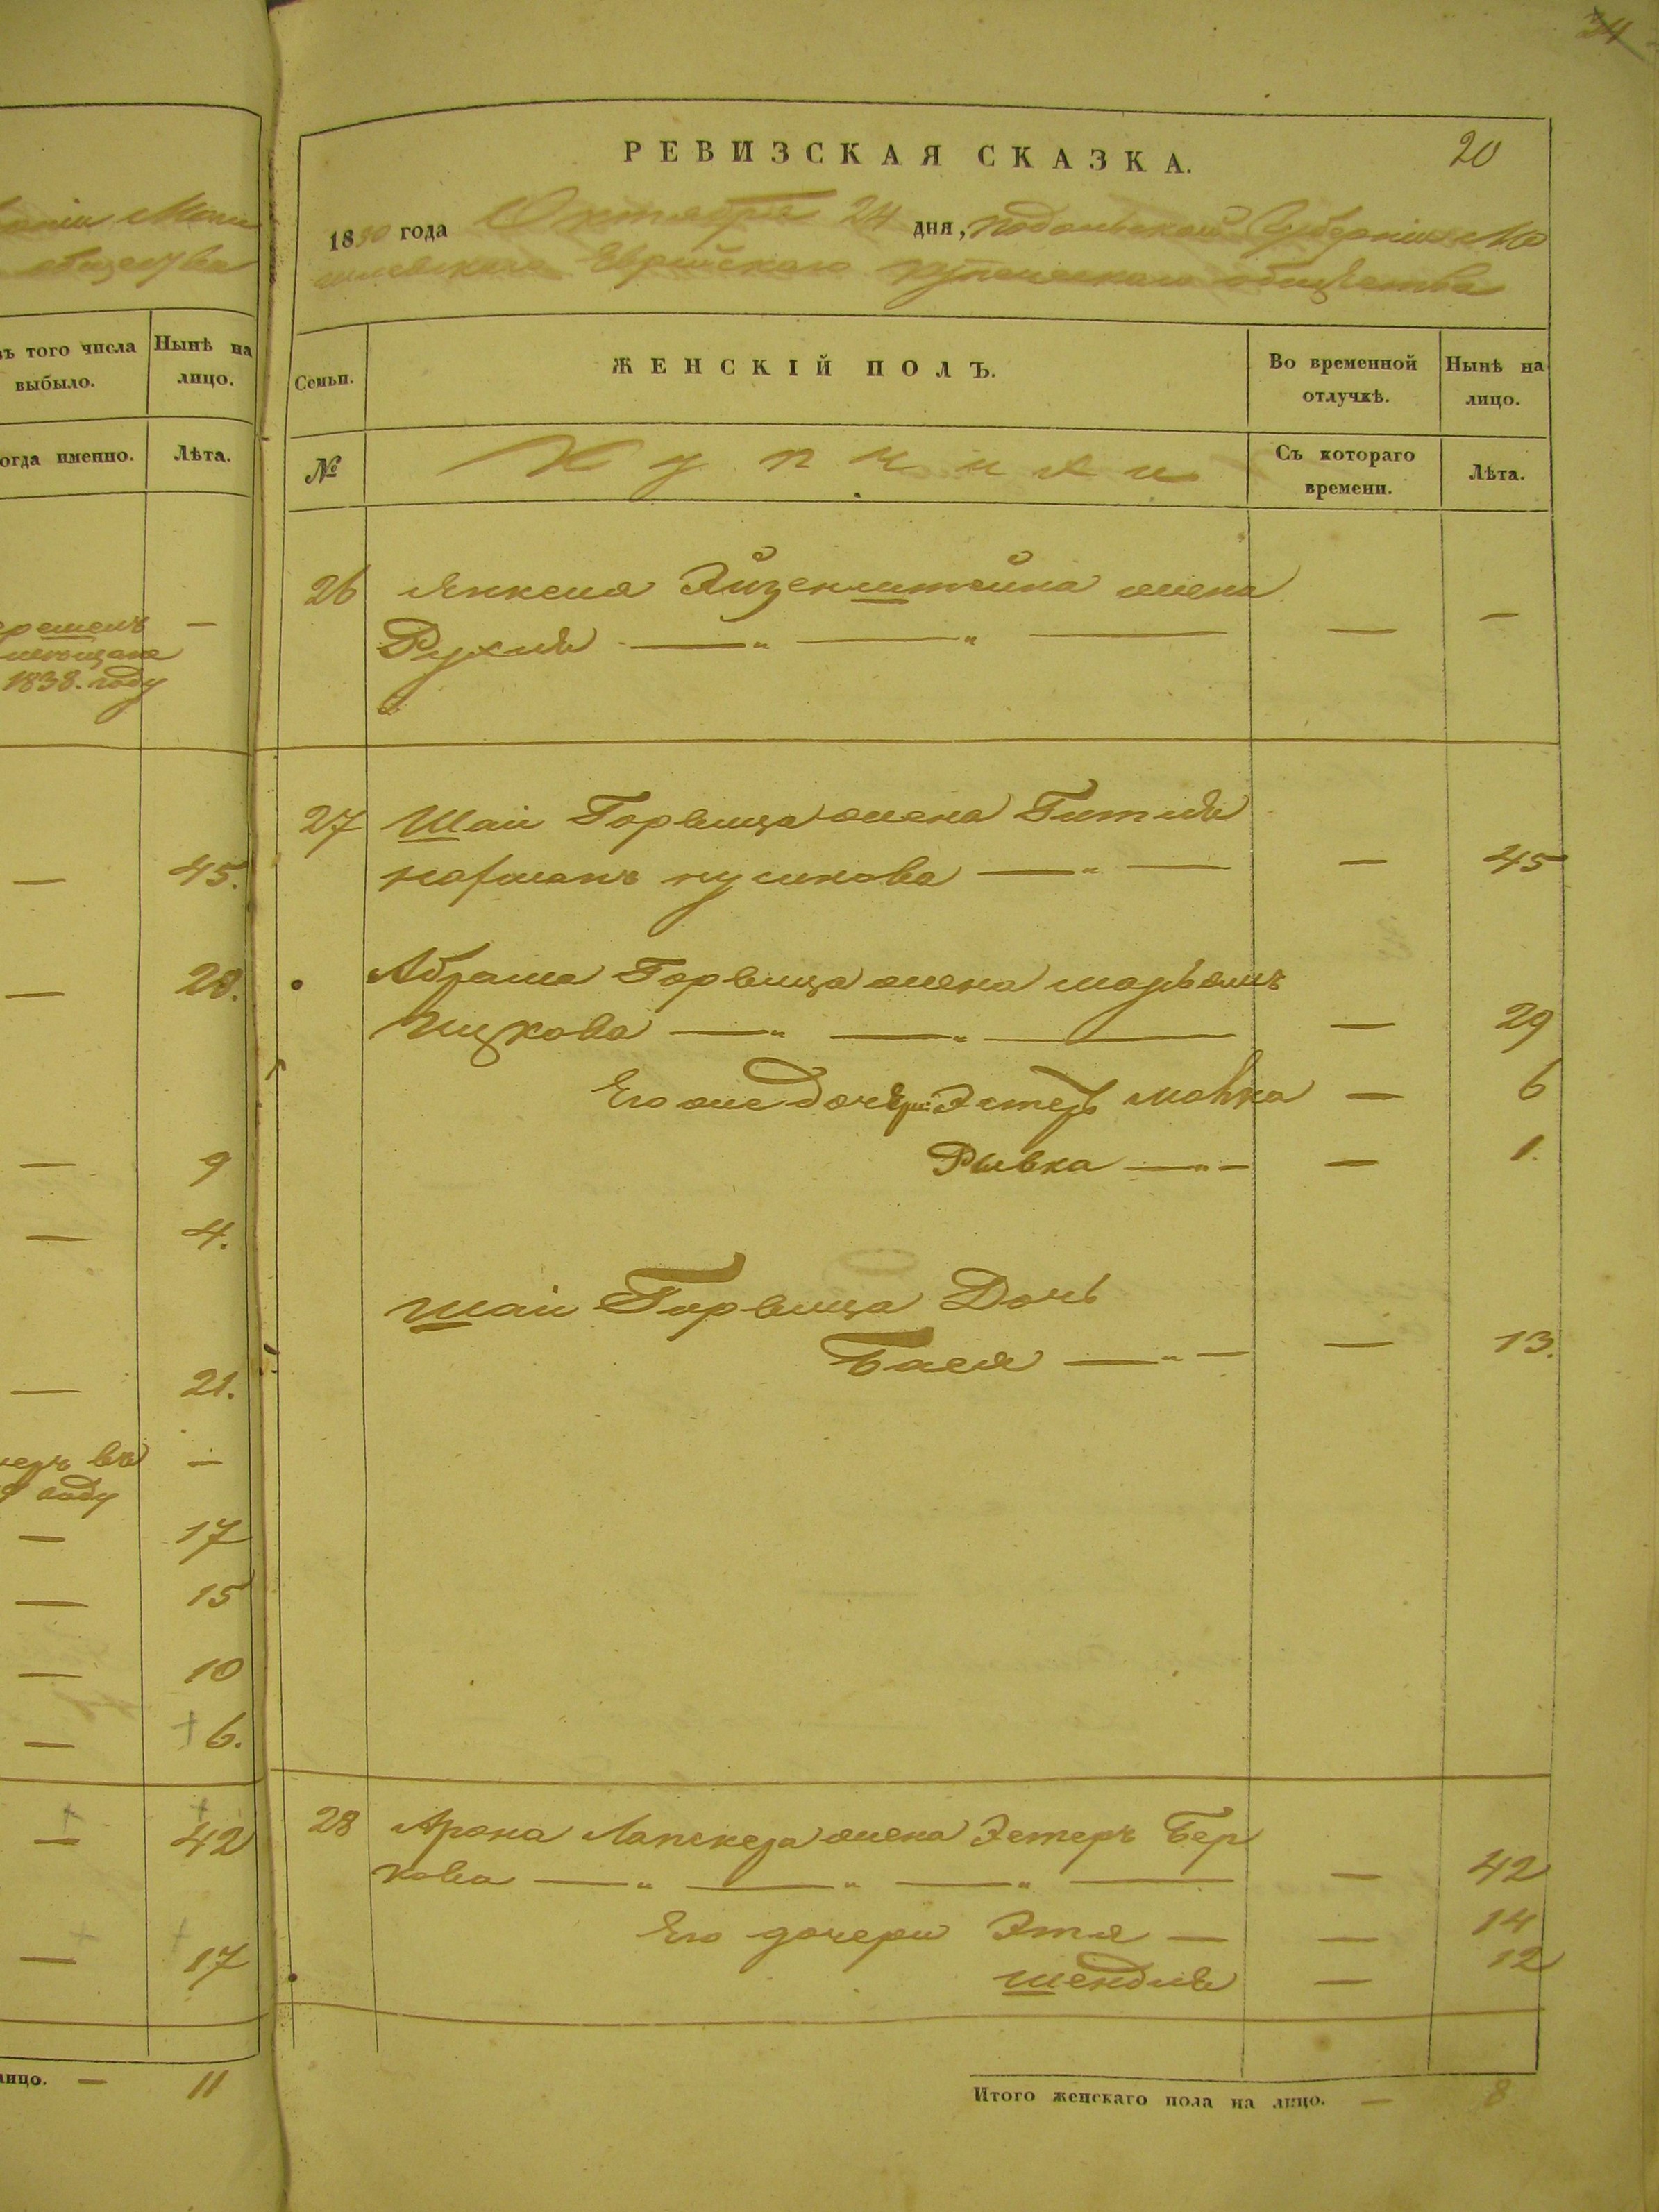 34
РЕВИЗСКАЯ СКАЗКА.
20
1850 года Октября 24 дня, Подольской Губернiи Мо
гилевскаго Еврейскаго купеческаго общества
въ того числа выбыло.
Нынѣ на лицо.
огда именно.
Лѣта.
Семьи.
ЖЕНСКІЙ ПОЛЪ.
Во временной отлучкѣ.
Нынѣ на лицо.
№
Съ котораго времени.
Лѣта.
26 Янкеля Эйзенштейна жена
Рухля — " — " — — —
1838. году
27 Шаи Горвица жена Гитля
— " — — 45
— 45.
Абрама Горвица жена Марьямъ
Ицкова — " — " — — 29
— 28.
Его же дочери: Эстеръ Малка — 6
Рывка — " — — 1.
— 9
— 4.
Шаи Горвица Дочь
Бася — " — — 13.
— 21.
году
— 17
— 15
— 10
— 6.
28 Арона Лапскера жена Эстеръ Бер
кова — " — " — " — — 42
— 42
Его дочери Этя — — 14
Шендля — 12
— 17
лицо. — 11
Итого женскаго пола на лицо. — 8